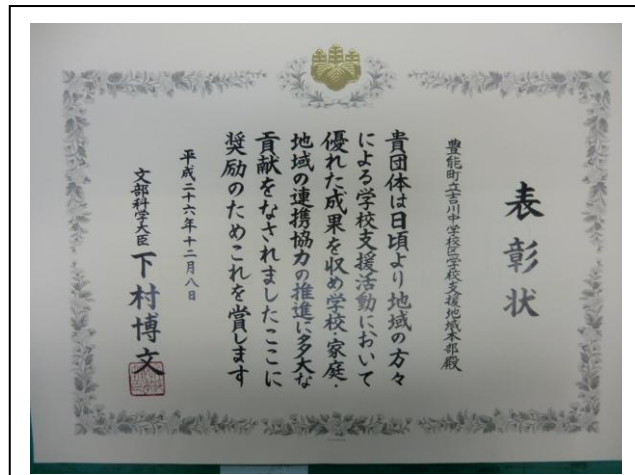 表彰状
豊能町立吉川中学校区学校支援地域本部殿
貴団体は日頃より地域の方々
による学校支援活動において
優れた成果を収め学校・家庭・
地域の連携協力の推進に多大な
貢献をなされましたここに
奨励のためこれを賞します
平成二十六年十二月八日
文部科学大臣 下村博文